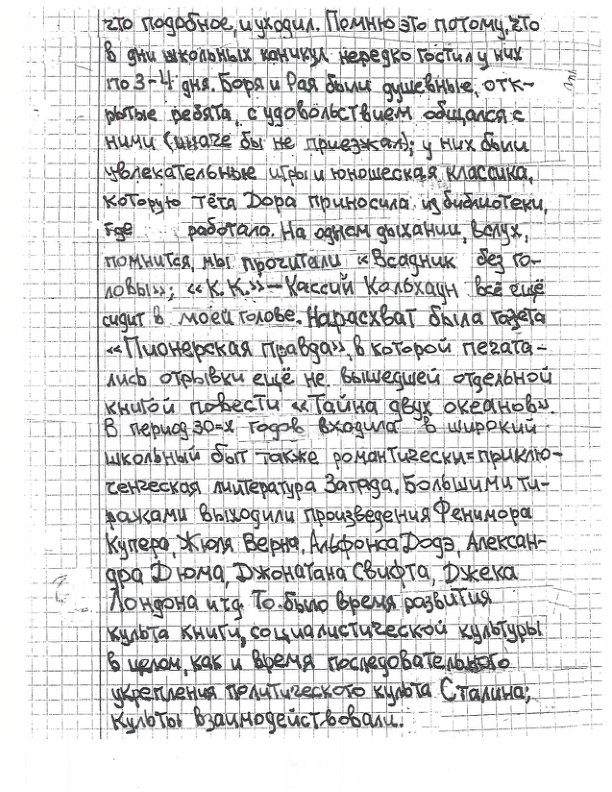 что подобное, и уходил. Помню это потому, что
в дни школьных каникул нередко гостил у них
по 3-4 дня. Боря и Рая были душевные, отк-
рытые ребята, с удовольствием общался с
ними (иначе бы не приезжал); у них были
увлекательные игры и юношеская классика,
которую тётя Дора приносила из библиотеки,
где работала. На одном дыхании, вслух,
помнится, мы прочитали «Всадник без го-
ловы»; «К.К.» – Кассий Кольхаун всё ещё
сидит в моей голове. Нарасхват была газета
«Пионерская правда», в которой печата-
лись отрывки ещё не вышедшей отдельной
книгой повести «Тайна двух океанов».
В период 30=х годов входила в широкий
школьный быт также романтически=приклю-
ченческая литература Запада. Большими ти-
ражами выходили произведения Фенимора
Купера, Жюля Верна, Альфонса Додэ, Алексан-
дра Дюма, Джонатана Свифта, Джека
Лондона и тд. То было время развития
культа книги, социалистической культуры
в целом, как и время последовательного
укрепления политического культа Сталина;
культы взаимодействовали.